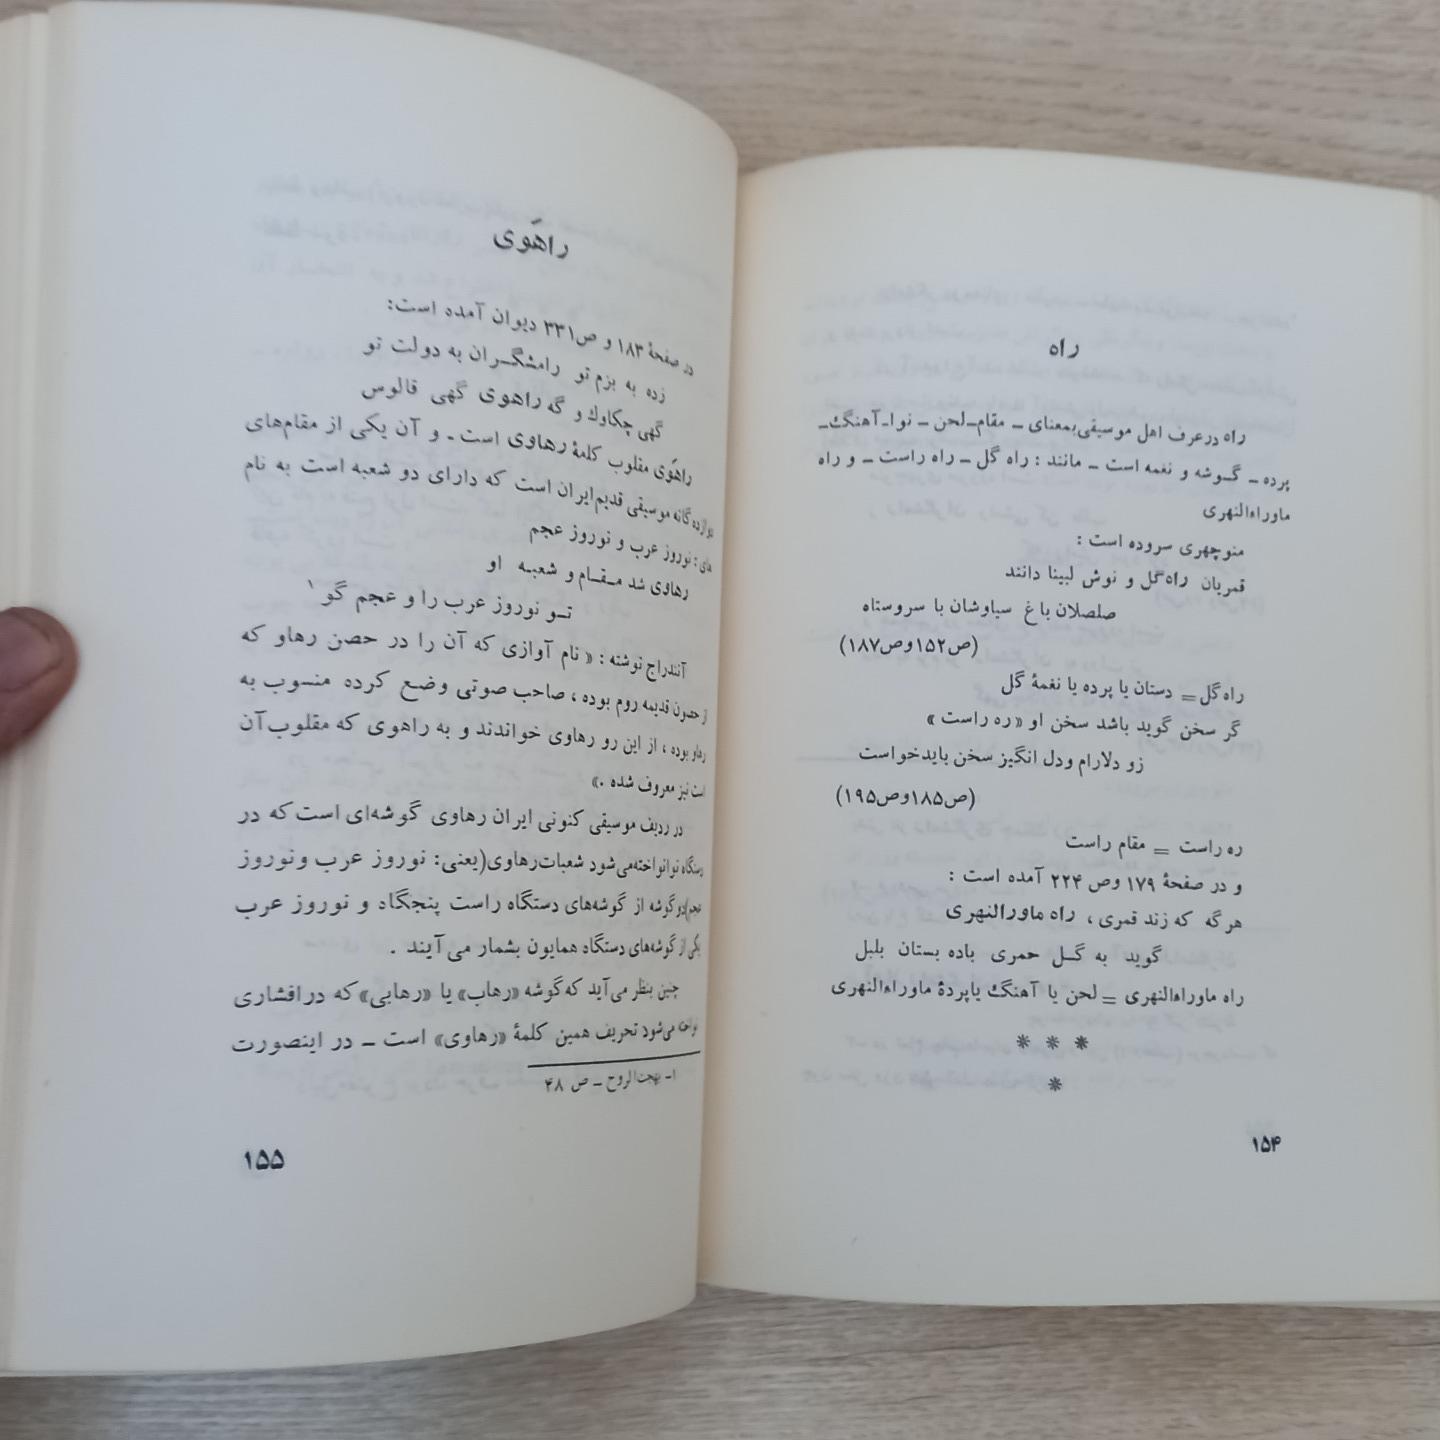 راه
راه درعرف اهل موسیقی‌بمعنای ـ مقام‌ـ‌لحن ـ نوا‌ـ‌آهنگ‌ـ
پرده ـ گـوشه و نغمه است ـ مانند : راه گل ـ راه راست ـ و راه
ماوراءالنهری
منوچهری سروده است :
قمریان راه‌گل و نوش لبینا دانند
صلصلان باغ سیاوشان با سروستاه
(ص۱۵۲وص۱۸۷)
راه‌گل= دستان یا پرده یا نغمهٔ گل
گر سخن گوید باشد سخن او «ره راست »
زو دلارام ودل انگیز سخن باید‌خواست
(ص۱۸۵وص۱۹۵)
ره راست = مقام راست
و در صفحهٔ ۱۷۹ وص ۲۲۴ آمده است :
هرگه که زند قمری ، راه ماورالنهری
گوید به گـل حمری باده بستان بلبل
راه ماوراءالنهری = لحن یا آهنگ یا‌پردهٔ ماوراءالنهری
* * *
*
۱۵۴
راهَوی
در صفحهٔ ۱۸۳ و ص۳۳۱ دیوان آمده است:
زده به بزم تو رامشگـران به دولت تو
گهی چکاوك و گه راهوی گهی قالوس
راهَوی مقلوب کلمهٔ رهاوی است ـ و آن یکی از مقام‌های
دوازده گانه موسیقی قدیم‌ایران است که دارای دو شعبه است به نام
های : نوروز عرب و نوروز عجم
رهاوی شد مـقـام و شعبـه او
تـو نوروز عرب را و عجم گو ۱
آنندراج نوشته : « نام آوازی که آن را در حصن رهاو که
از حصون قدیمه روم بوده ، صاحب صوتی وضع کرده منسوب به
رهاو بوده ، از این رو رهاوی خواندند و به راهوی که مقلوب‌آن
است نیز معروف شده .»
در ردیف موسیقی کنونی ایران رهاوی گوشه‌ای است که در
دستگاه نوانواخته‌می‌شود شعبات‌رهاوی(یعنی: نوروز عرب ونوروز
عجم)دوگوشه از گوشه‌های دستگاه راست پنجگاه و نوروز عرب
یکی از گوشه‌های دستگاه همایون بشمار می آیند .
چنین بنظر می‌آید که‌گوشه «رهاب» یا «رهابی» که درافشاری
نواخته می‌شود تحریف همین کلمهٔ «رهاوی» است ـ در اینصورت
۱ـ بهجت‌الروح ـ ص ۴۸
۱۵۵